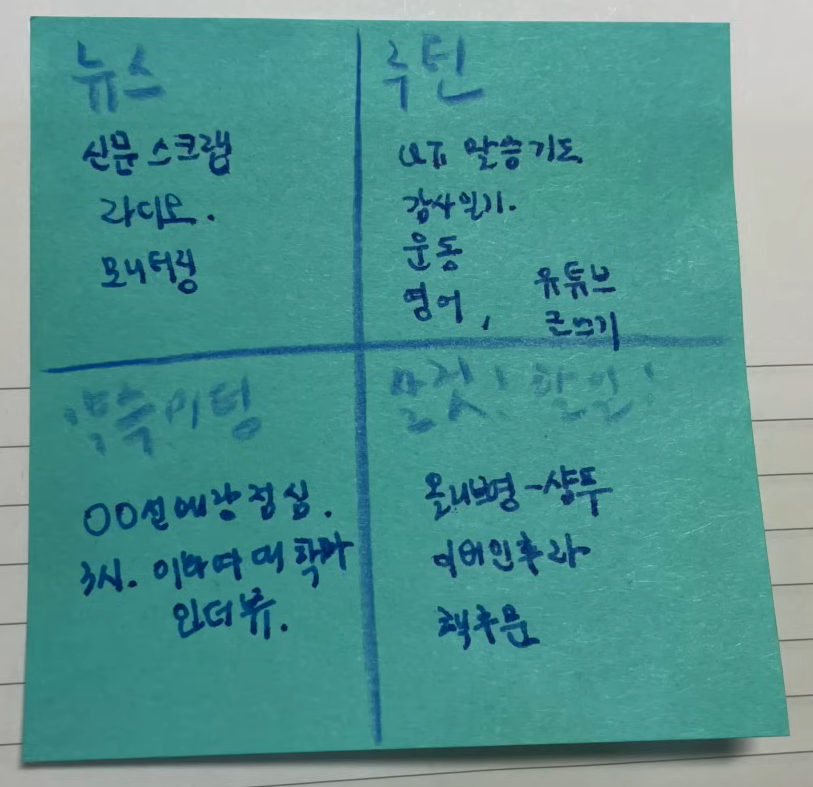 뉴스
신문 스크랩
라디오.
모니터링
루틴
QT 말씀기도
감사일기.
운동
영어, 유튜브
글쓰기
약속 미팅
OO선배랑 점심.
3시. 이화여대 학과
인터뷰.
살것! 할일!
올리브영-샴푸
책주문